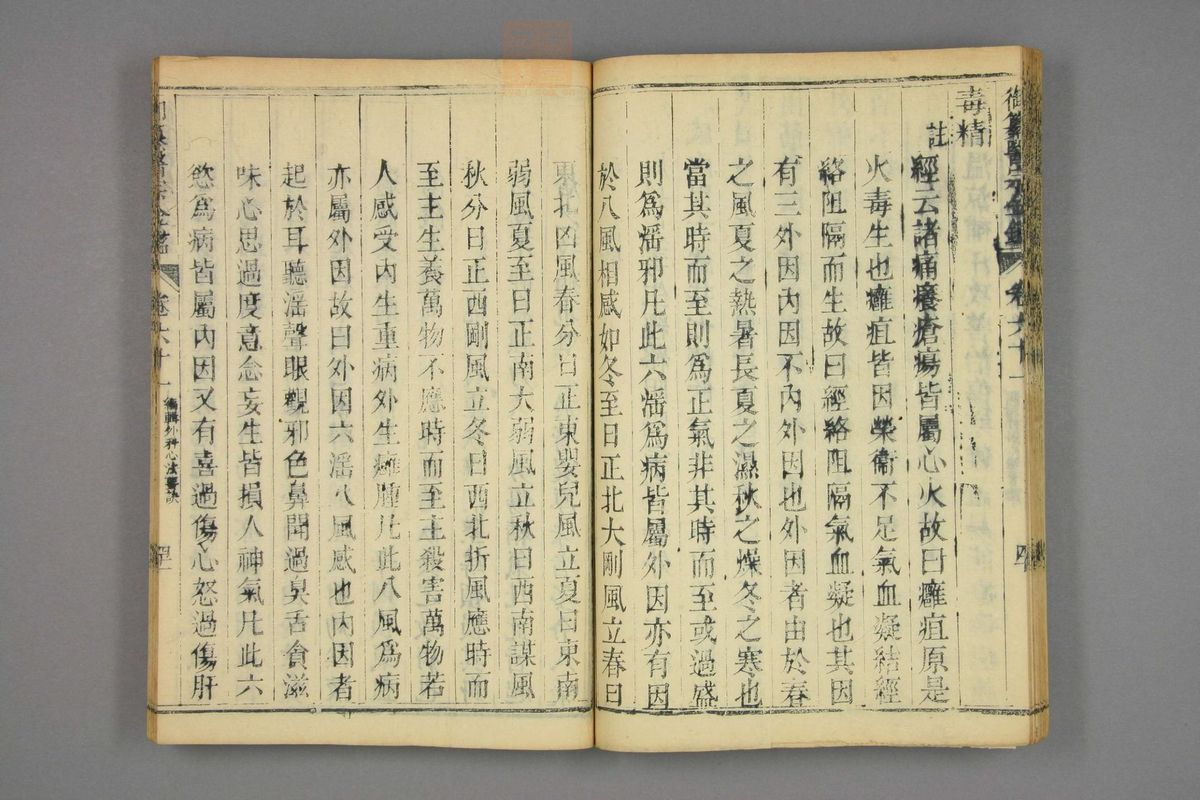 御纂醫宗金鑑 卷六十一
毒精
註
經云諸痛癢瘡瘍皆屬心火故曰癰疽原是
火毒生也癰疽皆因榮衞不足氣血凝結經
絡阻隔而生故曰經絡阻隔氣血凝也其因
有三外因內因不內外因也外因者由於春
之風夏之熱暑長夏之濕秋之燥冬之寒也
當其時而至則爲正氣非其時而至或過盛
則爲淫邪凡此六淫爲病皆屬外因亦有因
於八風相感如冬至日正北大剛風立春日
東北凶風春分日正東嬰兒風立夏日東南
弱風夏至日正南大弱風立秋日西南謀風
秋分日正西剛風立冬日西北折風應時而
至主生養萬物不應時而至主殺害萬物若
人感受內生重病外生癰腫凡此八風爲病
亦屬外因故曰外因六淫八風感也內因者
起於耳聽淫聲眼觀邪色鼻聞過臭舌貪滋
味心思過度意念妄生皆損人神氣凡此六
慾爲病皆屬內因又有喜過傷心怒過傷肝
卷六十一 編輯外科心法要訣